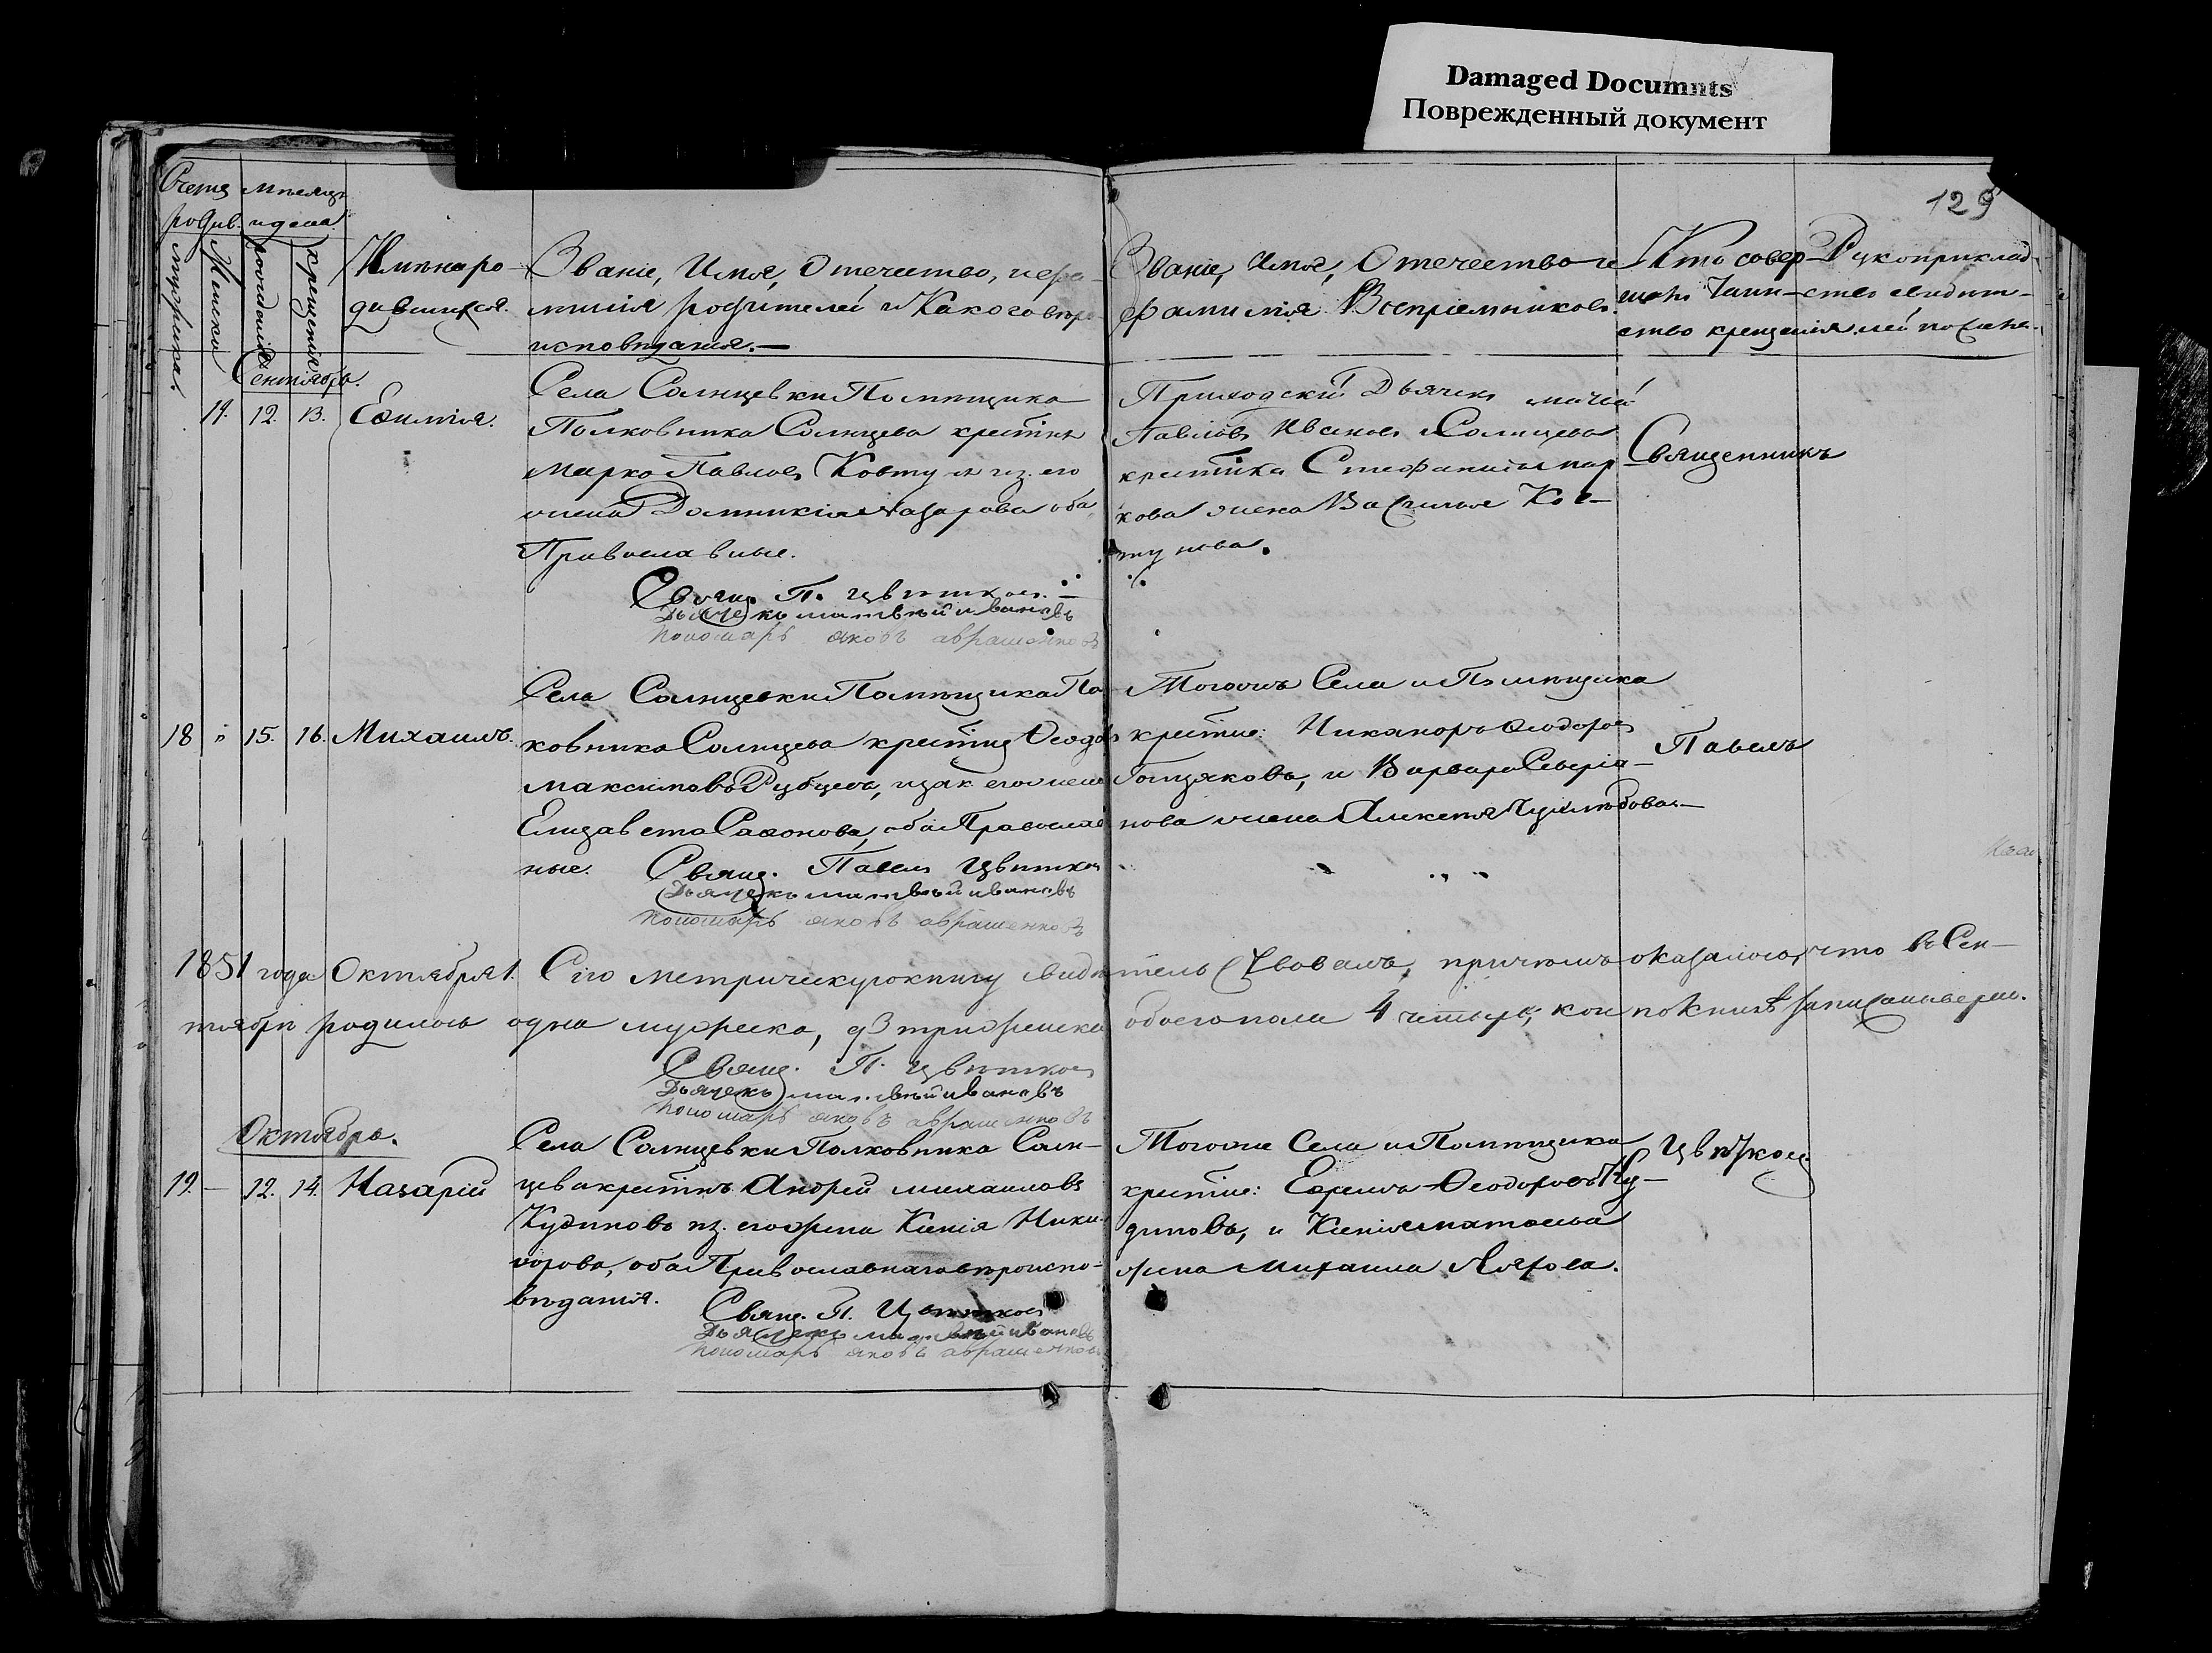 Damaged Documnts
Поврежденный документ
129
Счетъ
родив.
мѣсяцъ
и день
мужеска.
Женска
рожденія
крещенія
Имена ро-
дившихся.
Званіе, Имя, Отечество, и фа-
милія родителей и Какого вѣро
исповѣданія.—
Званіе, Имя, Отечество и
фамилія Воспріемниковъ.
Кто совер-
шалъ Таин-
ство крещенія
Рукоприклад-
ство свидѣте-
лей по жела-
Сентябрь.
11. 12. 13. Евѳимія.
Села Солнцевки Помѣщика
Полковника Солнцева крестьян
Марко Павловъ Ковтун из. его
жена Домникія Назарова оба
Православные.
Свящ. П. Цвѣтков.
Дьячекъ матвѣй ивановъ
пономарь яковъ авраменковъ
Приходскій Дьячекъ
Павловъ Ивановъ и Солнцева
крестьянка Стефанида мар
кова жена Василья Ков-
тунова.
Священникъ
18 " 15. 16. Михаилъ.
Села Солнцевки Помѣщика Пол
ковника Солнцева крестьян Ѳеодор
Максимовъ Рубцевъ, и зак. его жена
Елизавета Сафонова, оба Православ
ные. Свящ. Павел Цвѣтков
Дьячекъ матвѣй ивановъ
пономарь яковъ авраменковъ
Тогожъ Села и Помѣщика
крестьяне: Никаноръ Ѳеодоров
и Варвара Северіа-
нова жена Алексея
Павелъ
1851 года Октября 1. Сію метрическую книгу свидѣтельствовалъ, причемъ оказалось, что въ Сен-
тябрѣ родилось одна мужеска, а 3 три женска обоего пола 4 четыре, кои по книгѣ записаны верно.
Свящ. П. Цвѣтков
Дьячекъ матвѣй ивановъ
пономарь яковъ авраменковъ
Октябрь.
19. — 12. 14. Назарій
Села Солнцевки Полковника Солн-
цева крестьянъ Андрей михаиловъ
Кудиновъ из. его жена Ксенія Ники-
форова, оба Православнаго вѣроиспо-
вѣданія.
Свящ. П. Цвѣтков
Дьячекъ матвѣй ивановъ
пономарь яковъ авраменковъ
Тогоже Села и Помѣщика
крестьяне: Ефремъ Ѳеодоровъ Ку-
диновъ, и Ксенія
жена Михаила
Цвѣтков